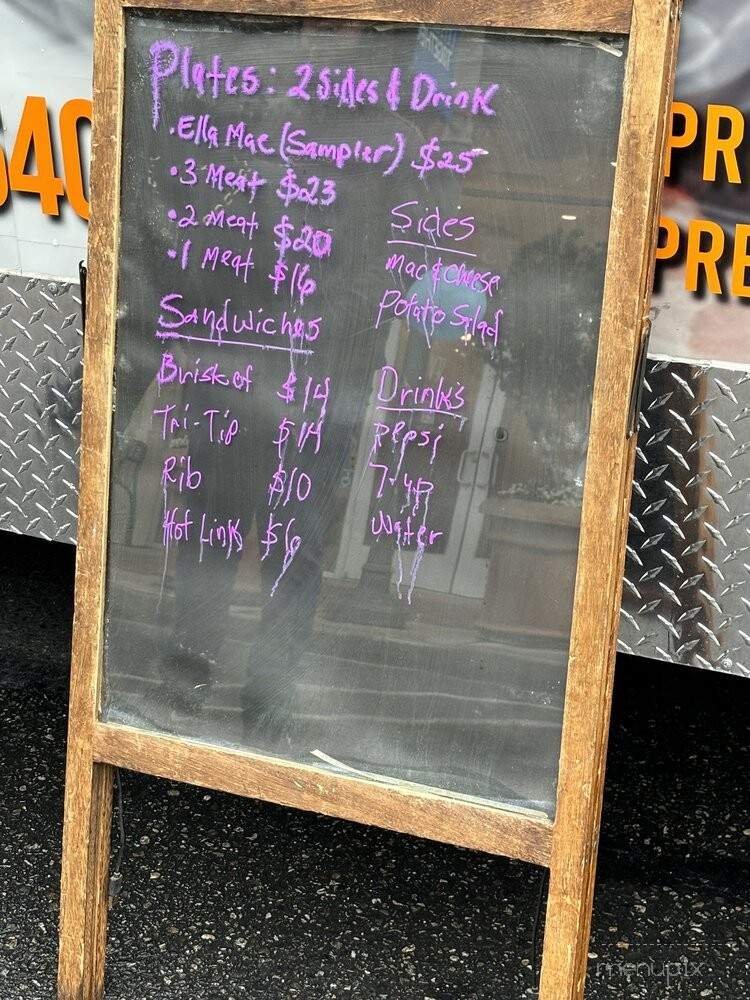 Plates: 2 Sides & Drink
• Ella Mac (Sampler) $25
• 3 Meat $23
• 2 Meat $20
• 1 Meat $16
Sandwiches
Brisket $14
Tri-Tip $14
Rib $10
Hot Link $6
Sides
Mac & Cheese
Potato Salad
Drinks
Pepsi
7-up
Water
540
PR
PRE
menupix